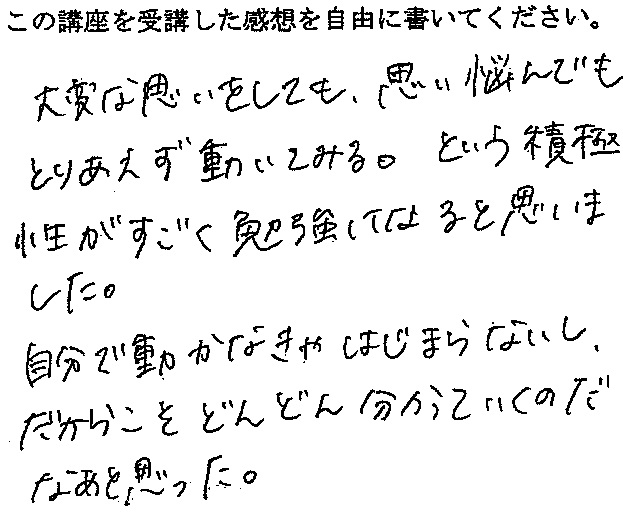 この講座を受講した感想を自由に書いてください。
大変な思いをしても、思い悩んでも
とりあえず動いてみる。という積極
性がすごく勉強になると思いま
した。
自分で動かなきゃはじまらないし、
だからこそどんどん分かっていくのだ
なあと思った。